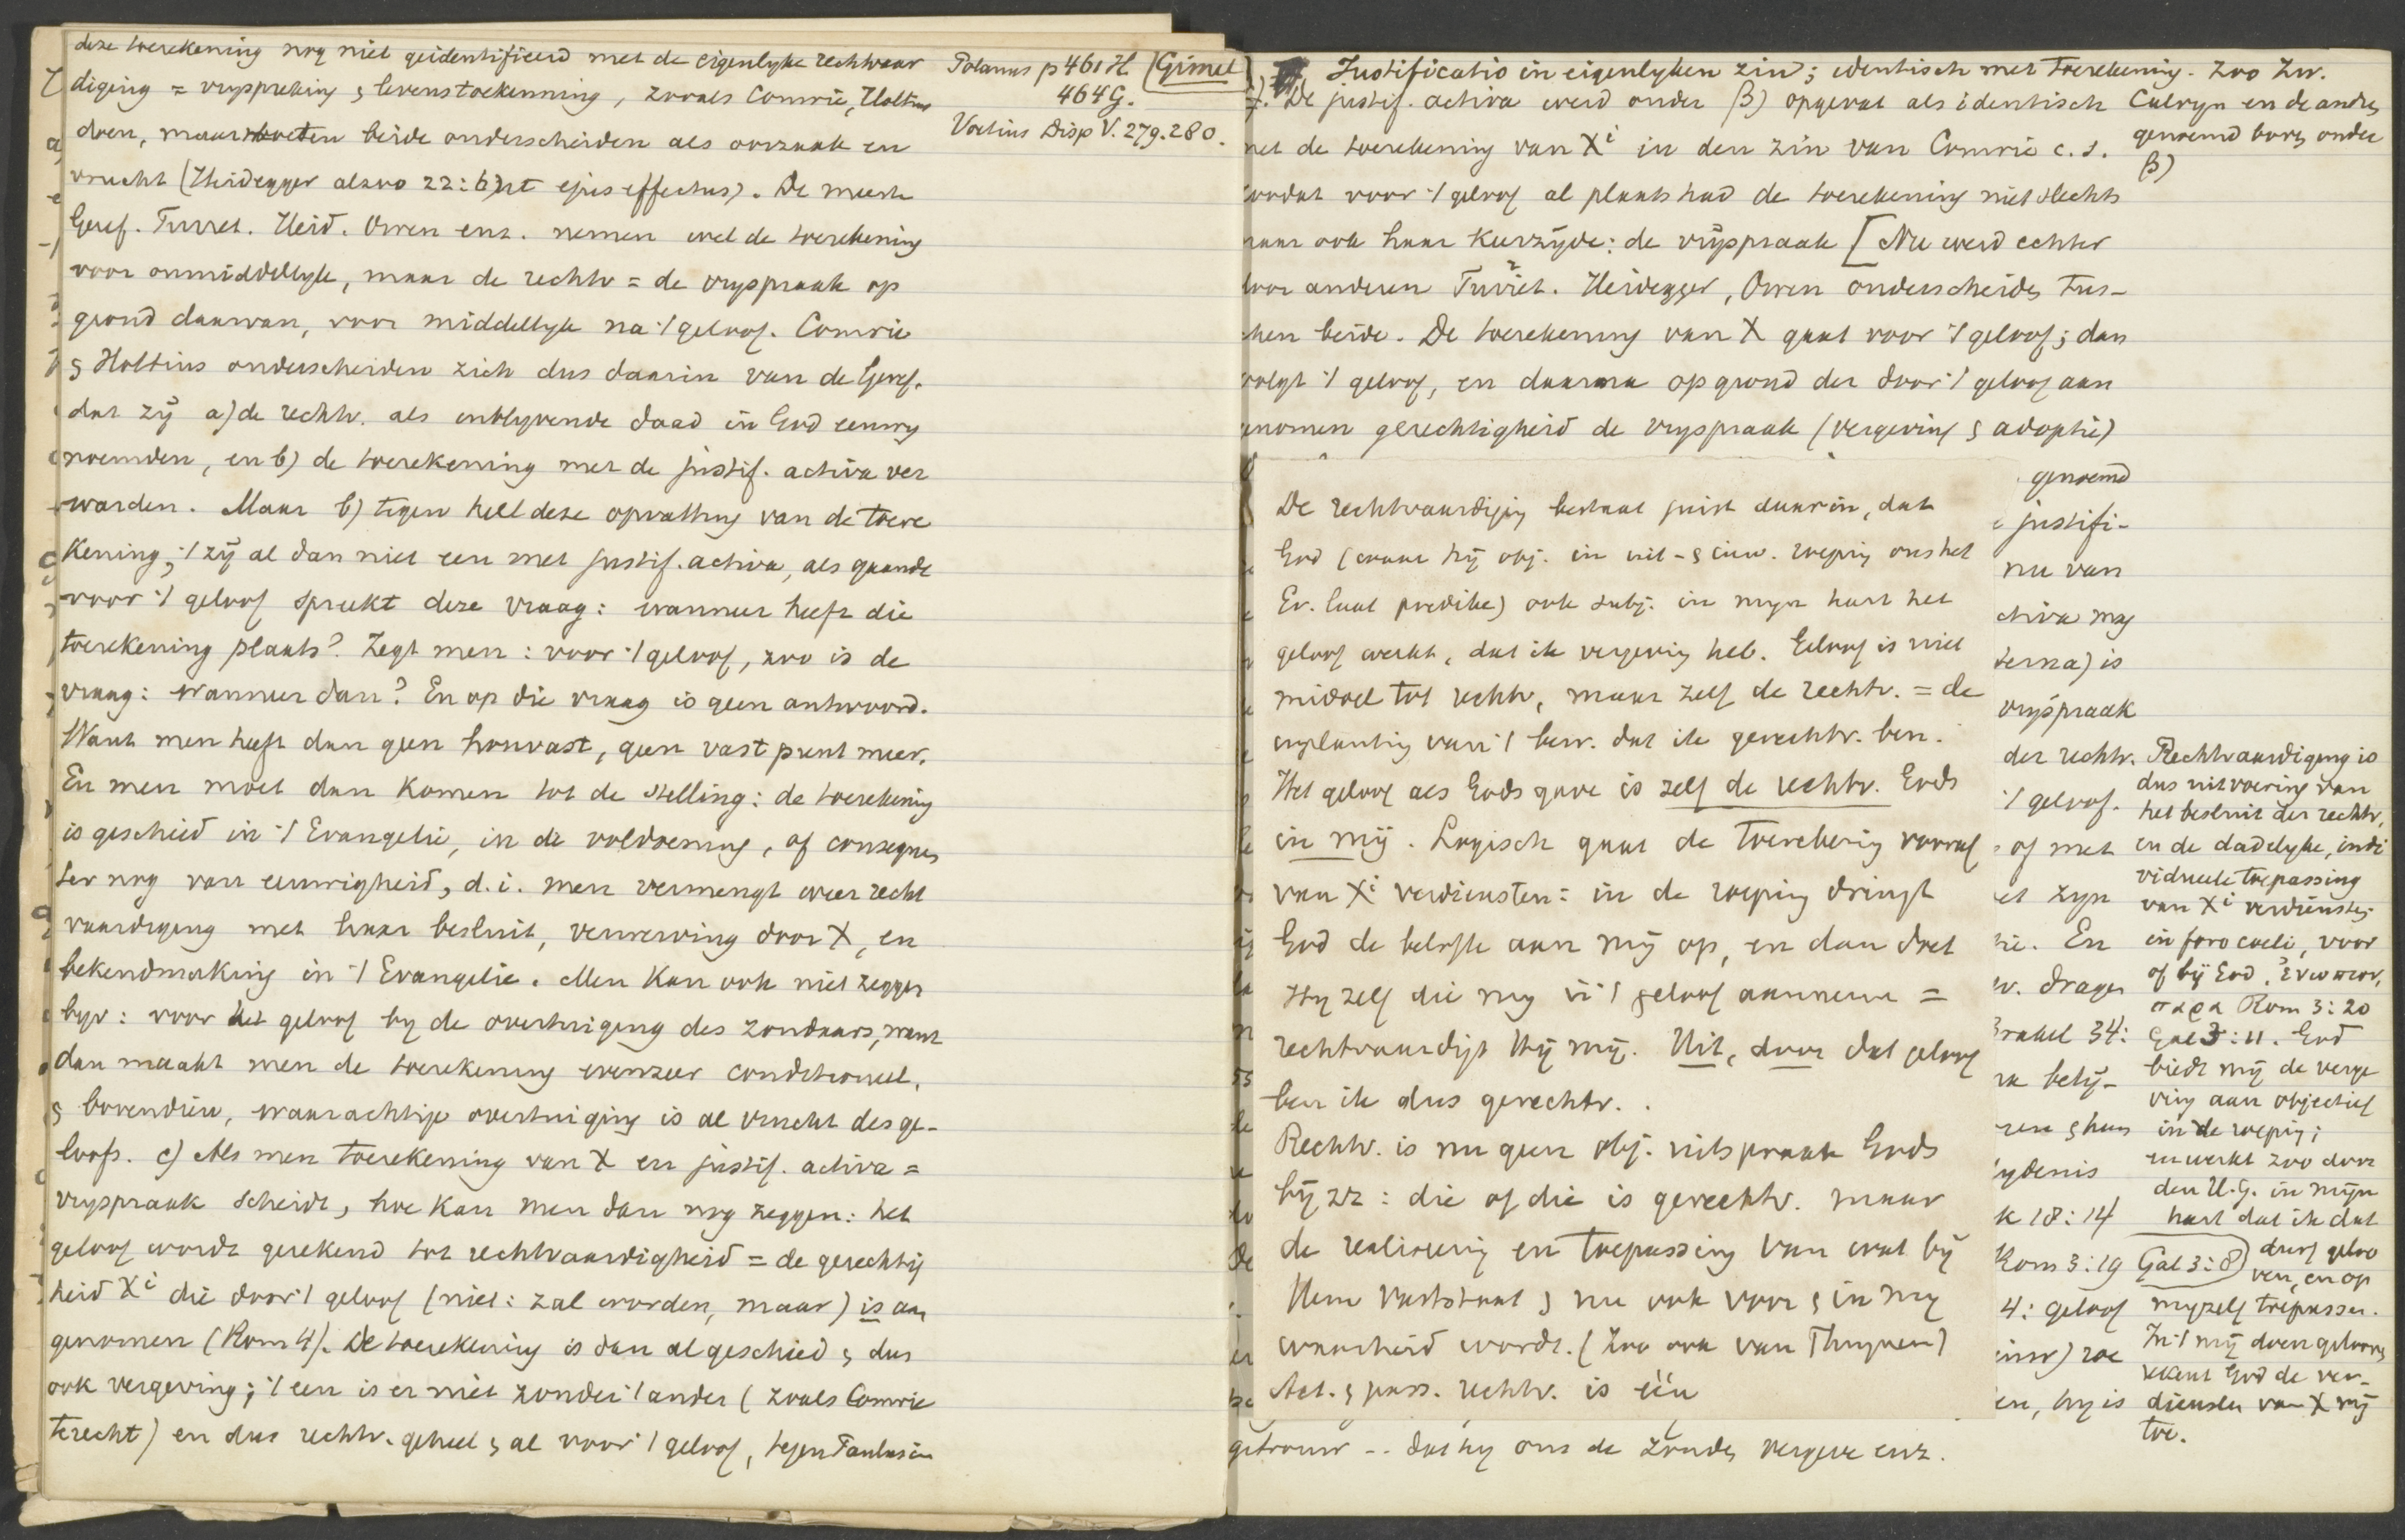 deze toerekening nog niet geidentificeerd met de eigenlyke rechtvaar
diging = vryspreking & levenstoekenning, zooals Comrie, Holtius
doen, maar moeten beide onderscheiden als oorzaak en
vrucht (Heidegger alzoo 22: ut ejus effectus). De meeste
Geref. Turret. Heid. Owen enz. nemen wel de toerekening
voor onmiddellyk, maar de rechtv = de vryspraak op
grond daarvan, voor middellyk na 't geloof. Comrie
& Holtius onderscheiden zich dus daarin van de Geref.
dat zij a) de rechtv. als inblyvende daad in God eeuwig
noemden, en b) de toerekening met de justif. activa ver
warden. Maar b) tegen heel deze opvatting van de toere
kening, 't zij al dan niet een met justif. activa, als gaande
voor 't geloof spreekt deze vraag: wanneer heeft die
toerekening plaats? Zegt men: voor 't geloof, zoo is de
vraag: wanneer dan? En op die vraag is geen antwoord.
Want men heeft dan geen houvast, geen vast punt meer.
En men moet dan komen tot de stelling: de toerekening
is geschied in 't Evangelie, in de voldoening, of consequen
ter nog van eeuwigheid, d.i. men vermengt weer recht
vaardiging met haar besluit, verwerving door X, en
bekendmaking in 't Evangelie. Men kan ook niet zeggen
byv: voor het geloof by de overtuiging des zondaars, want
dan maakt men de toerekening evenzeer conditioneel,
& bovendien, waarachtige overtuiging is al vrucht des ge-
loofs. c) Als men toerekening van X en justif. activa =
vryspraak scheidt, hoe kan men dan nog zeggen: het
geloof wordt gerekend tot rechtvaardigheid = de gerechtig
heid Xi die door 't geloof (niet: zal worden, maar) is aan
genomen (Rom 4). De toerekening is dan al geschied & dus
ook vergeving; 't een is er niet zonder 't ander (zooals Comrie
terecht) en dus rechtv. geheel & al voor 't geloof, tegen Paulus in
Polanus p 461 H.
464 G.
Voetius Disp V. 279. 280.
(Gimel)
Justificatio in eigenlyken zin; identisch met toerekening. Zoo Zw.
De justif. activa werd onder β) opgevat als identisch
met de toerekening van Xi in den zin van Comrie c.s.
zoodat voor 't geloof al plaats had de toerekening niet slechts
maar ook haar keerzijde: de vrijspraak [Nu werd echter
door anderen Turret. Heidegger, Owen onderscheiden tus-
schen beide. De toerekening van X gaat voor 't geloof; dan
volgt 't geloof, en daarna op grond der door 't geloof aan
genomen gerechtigheid de vryspraak (vergeving & adoptie)
Calvyn en de andere
genoemd boven onder
β)
De rechtvaardiging bestaat juist daarin, dat
God (waar hij obj. in uit- & inw. roeping ons het
Ev. laat prediken) ook subj. in myn hart het
geloof werkt, dat ik vergeving heb. Geloof is niet
middel tot rechtv, maar zelf de rechtv. = de
inplanting van 't bew. dat ik gerechtv. ben.
Het geloof als Gods gave is zelf de rechtv. Gods
in mij. Logisch gaat de toerekening vooraf
van Xi verdiensten: in de roeping dringt
God de belofte aan mij op, en dan doet
Hy zelf die my in 't geloof aannemen =
rechtvaardigt Hij mij. Uit, door dat geloof
ben ik dus gerechtv.
Rechtv. is nu geen obj. uitspraak Gods
bij zz: die of die is gerechtv. maar
de realiseering en toepassing van wat bij
Hem vaststaat & nu ook voor & in my
waarheid wordt. (Zoo ook van Thuynen)
Act. & pass. rechtv. is één
getrouw -- dat hy ons de zonden vergeve enz.
genoemd
justifi-
nu van
ctiva mag
terna) is
vrijspraak
der rechtv.
't geloof.
of met
et zyn
ie. En
v. dragen
Brakel 34:
ra bely-
ren & hun
ydenis
k 18:14
Rom 3:19
4: geloof
en, hy is
Rechtvaardiging is
dus uitvoering van
het besluit der rechtv,
en de dadelyke, indi
vidueele toepassing
van Xi verdiensten
in foro coeli, voor
of bij God. ἐνωπιον,
παρα Rom 3:20
Gal 3:11. God
biedt mij de verge
ving aan objectief
in de roeping;
en werkt zoo door
den H.G. in mijn
hart dat ik dat
Gal 3:8) durf geloo
ven, en op
myzelf toepassen.
In 't mij doen gelooven
rekent God de ver-
diensten van X mij
toe.